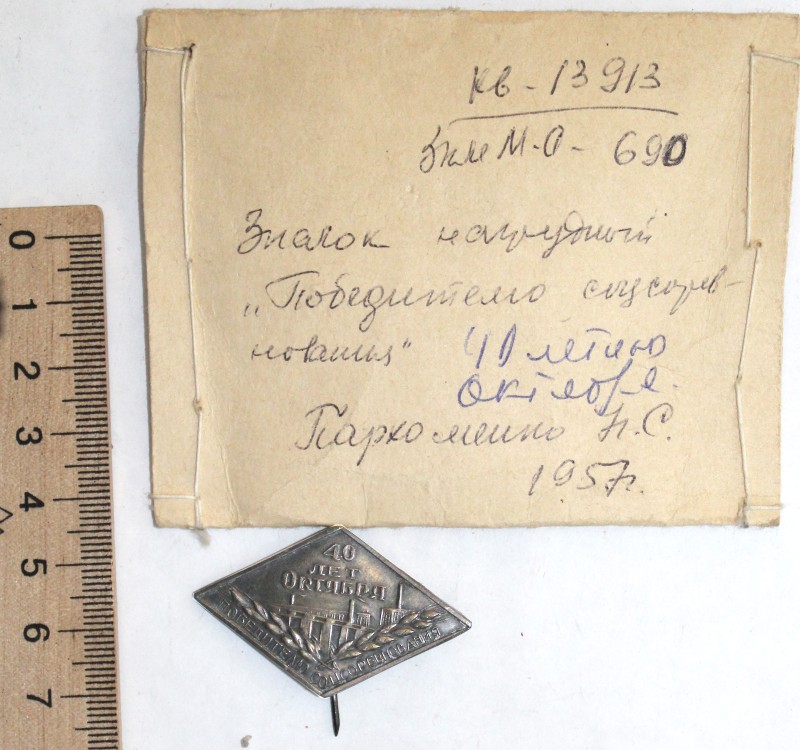 кв - 13913
М-О - 690
Значок нагрудный
„Победителю соцсорев-
нования" 40 летию
Октября.
Пархоменко Н.С.
1957г.
40
ЛЕТ
ОКТЯБРЯ
ПОБЕДИТЕЛЮ СОЦСОРЕВНОВАНИЯ
0
1
2
3
4
5
6
7